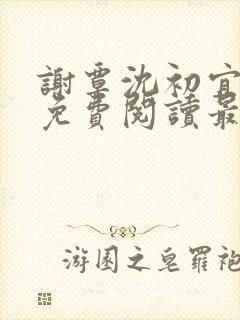 謝覃沈初宜
免費閱讀最
游園之皂羅袍